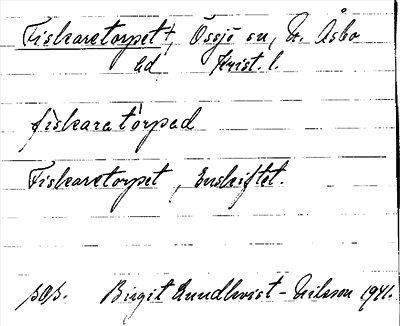 Fiskaretorpet †, Össjö sn, N. Åsbo
hd Krist. l.
fiskaratorpad
Fiskaretorpet, Enskiftet.
sog. Birgit Lundkvist-Nilsson 1941.